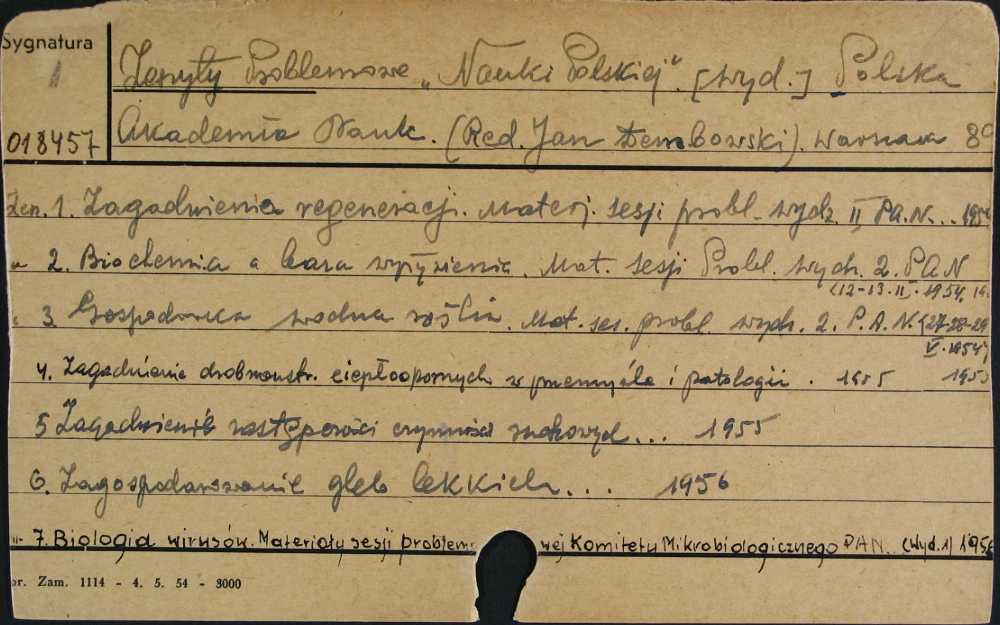 Sygnatura
1
018457
Zeszyty Problemowe „Nauki Polskiej". [wyd.] Polska
Akademia Nauk. (Red. Jan Dembowski). Warszawa 8°
Zesz. 1. Zagadnienia regeneracji. Materj. sesji probl. wydz. II P.A.N... 1954
" 2. Biochemia a baza wyżywienia. Mat. sesji Probl. wydz. 2. PAN
(12-13.II.1954,
" 3. Gospodarka wodna roślin. Mat. ses. probl. wydz. 2. P.A.N. (27-28-29
V.1954)
4. Zagadnienie drobnoustr. ciepłoopornych w przemyśle i patologii. 1955 1955
5 Zagadnienie zastępczości czynności ruchowych... 1955
6. Zagospodarowanie gleb lekkich... 1956
" 7. Biologia wirusów. Materiały sesji wej Komitetu Mikrobiologicznego PAN. (Wyd. 1) 1956
Zam. 1114 - 4. 5. 54 - 3000